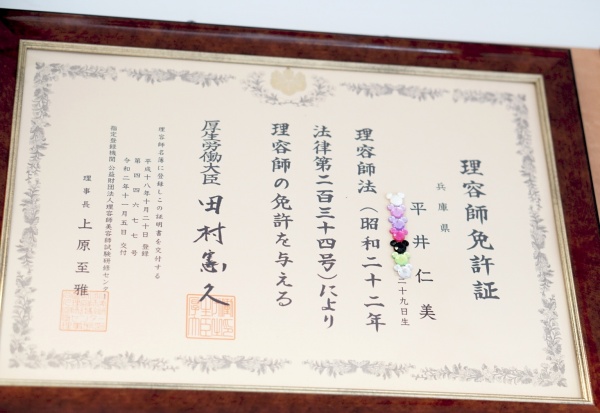 理容師免許証
兵庫県
平井仁美
二十九日生
理容師法（昭和二十二年
法律第二百三十四号）により
理容師の免許を与える
厚生労働大臣 田村憲久
理容師名簿に登録しこの証明書を交付する
平成十八年十月二十日 登録
第四四六七七号
令和二年十一月五日 交付
指定登録機関 公益財団法人理容師美容師試験研修センター
理事長 上原至雅